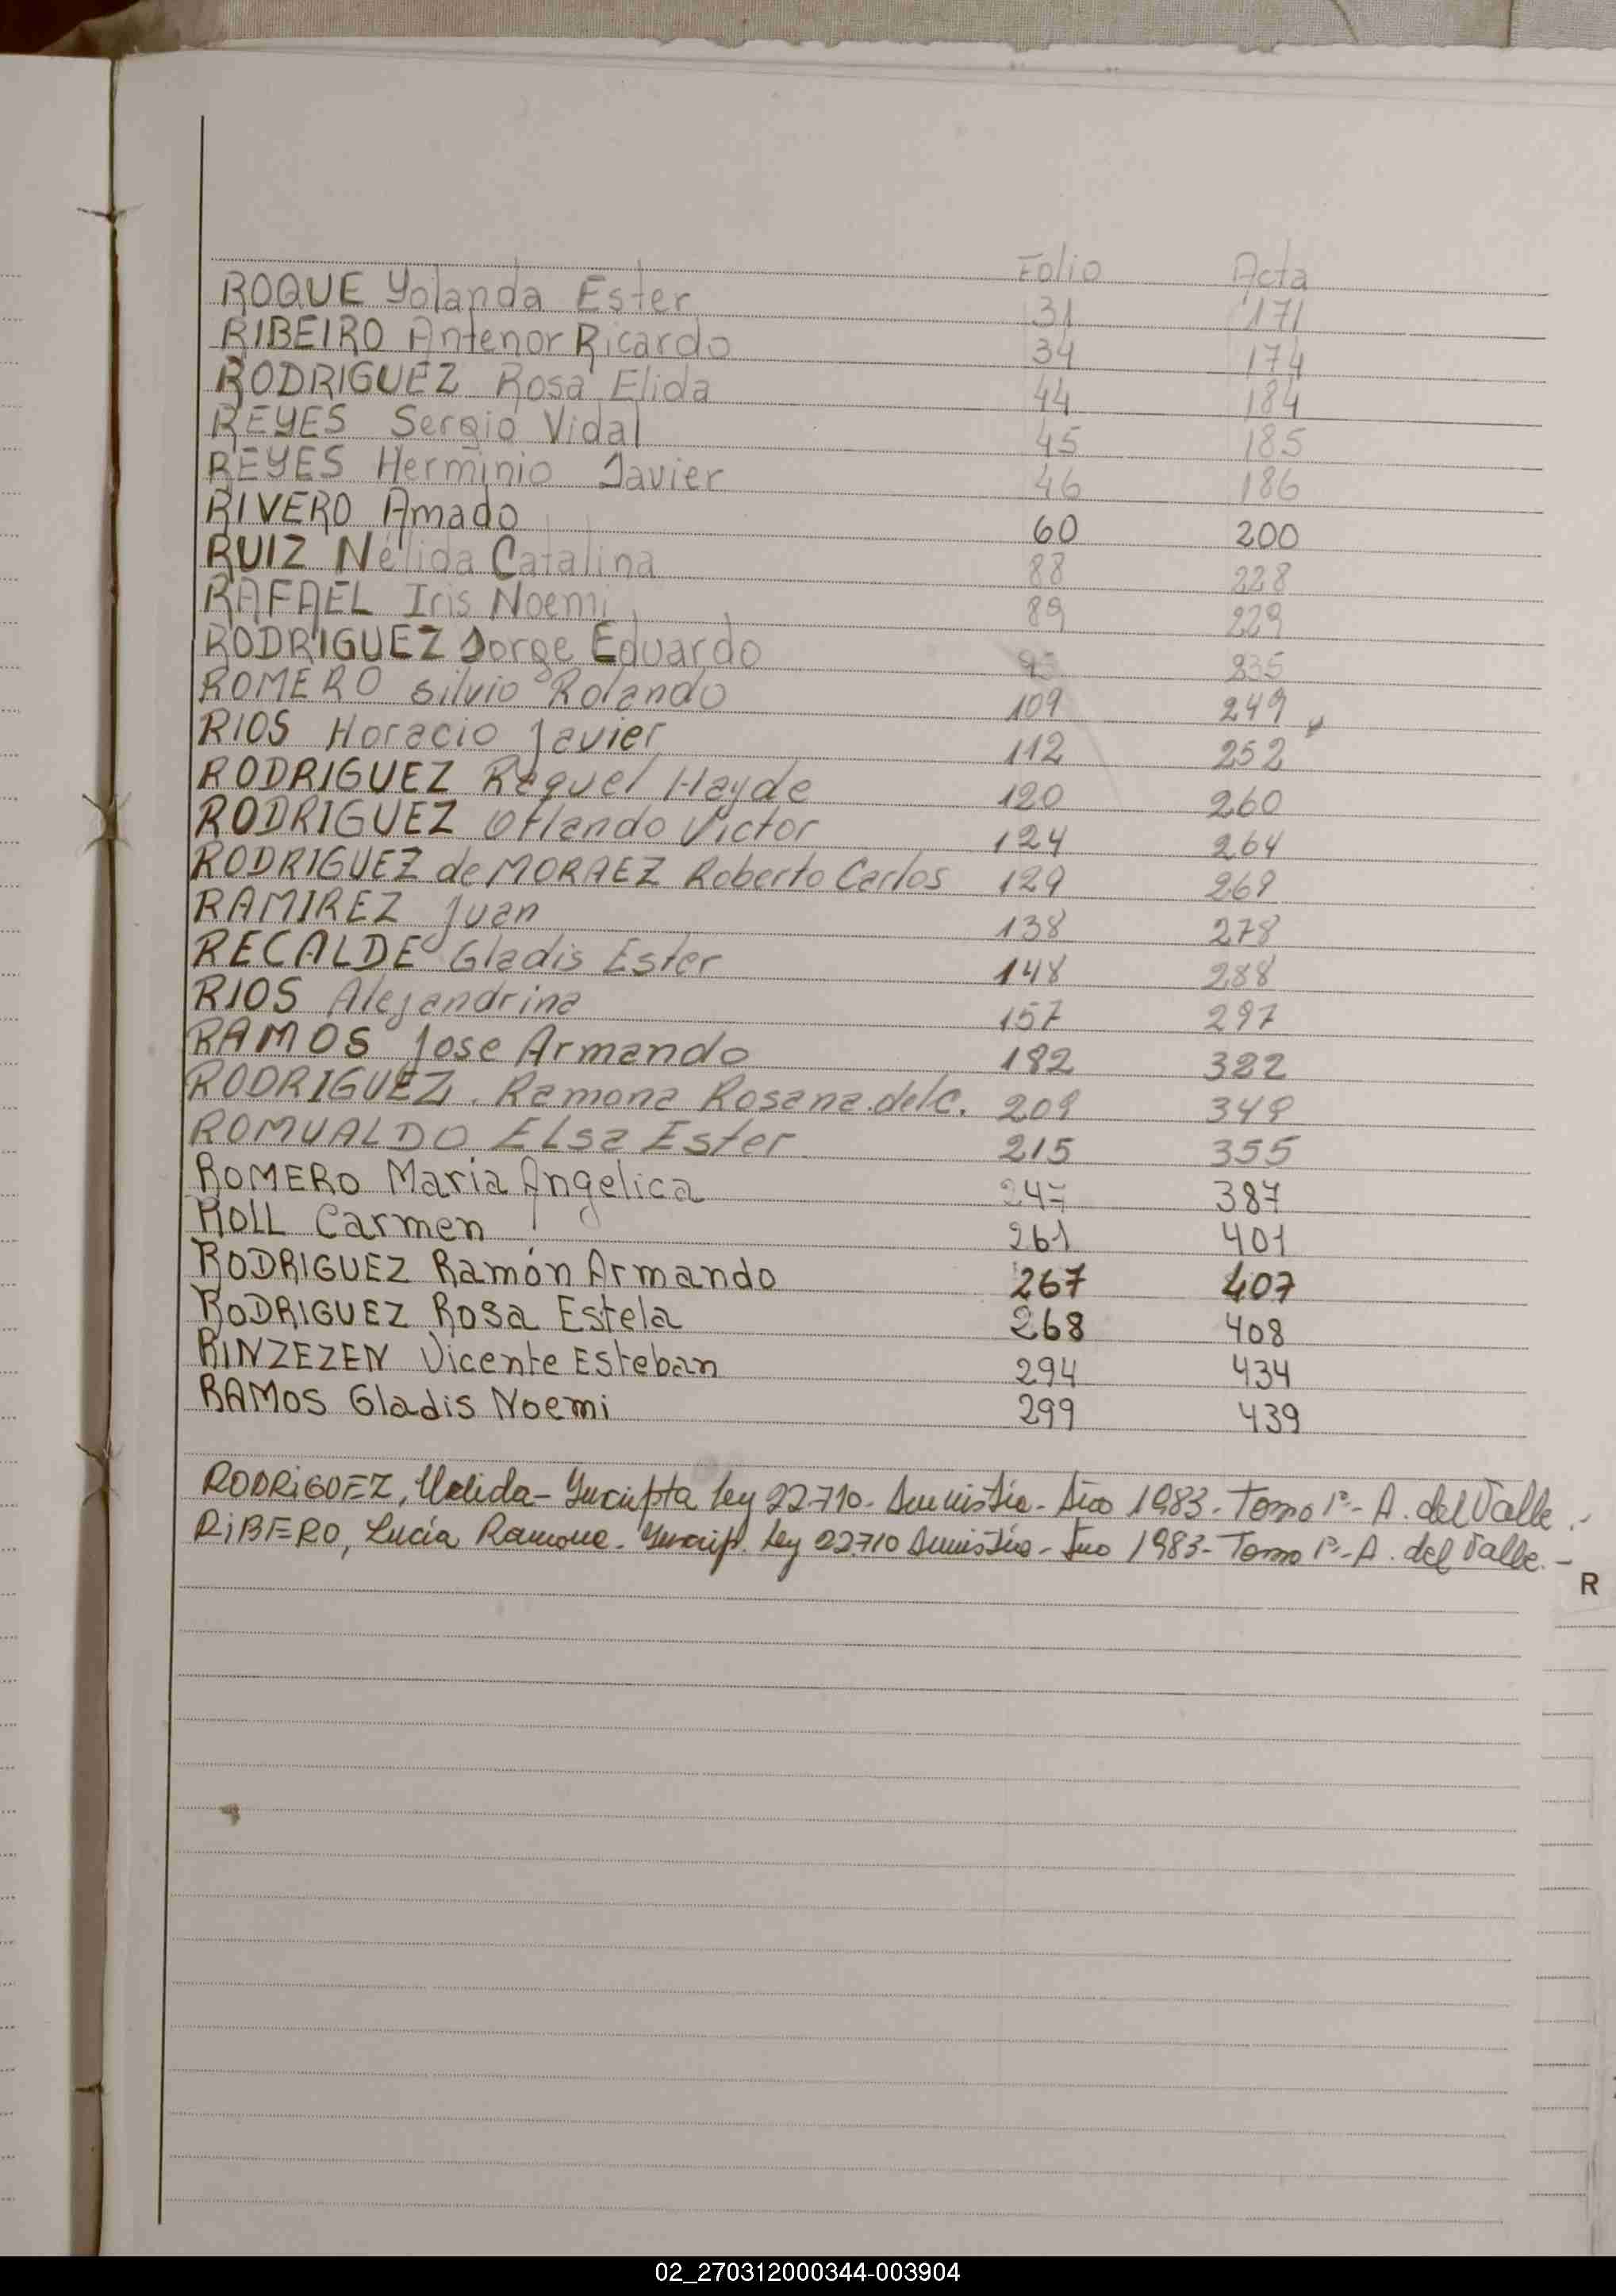 Folio Acta
ROQUE Yolanda Ester 31 171
RIBEIRO Antenor Ricardo 34 174
RODRIGUEZ Rosa Elida 44 184
REYES Sergio Vidal 45 185
REYES Herminio Javier 46 186
RIVERO Amado 60 200
RUIZ Nélida Catalina 88 228
RAFAEL Iris Noemi 89 229
RODRIGUEZ Jorge Eduardo 235
ROMERO Silvio Rolando 109 249
RIOS Horacio Javier 112 252
RODRIGUEZ Raquel Hayde 120 260
RODRIGUEZ Orlando Victor 124 264
RODRIGUEZ de MORAEZ Roberto Carlos 129 269
RAMIREZ Juan 138 278
RECALDE Gladis Ester 148 288
RIOS Alejandrina 157 297
RAMOS Jose Armando 182 322
RODRIGUEZ. Ramona Rosana.delC. 209 349
ROMUALDO ELsa Ester 215 355
ROMERO Maria Angelica 247 387
ROLL Carmen 261 401
RODRIGUEZ Ramón Armando 267 407
RODRIGUEZ Rosa Estela 268 408
RINZEZEN Vicente Esteban 294 434
RAMOS Gladis Noemi 299 439
RODRIGUEZ, - Inscripta Ley 22.710. Amnistía - Año 1983 - Tomo 1º - A. del Valle.-
RIBERO, Lucía Ramona - Inscrip. Ley 22.710 Amnistía - Año 1983 - Tomo 1º - A. del Valle. -
R
02_270312000344-003904